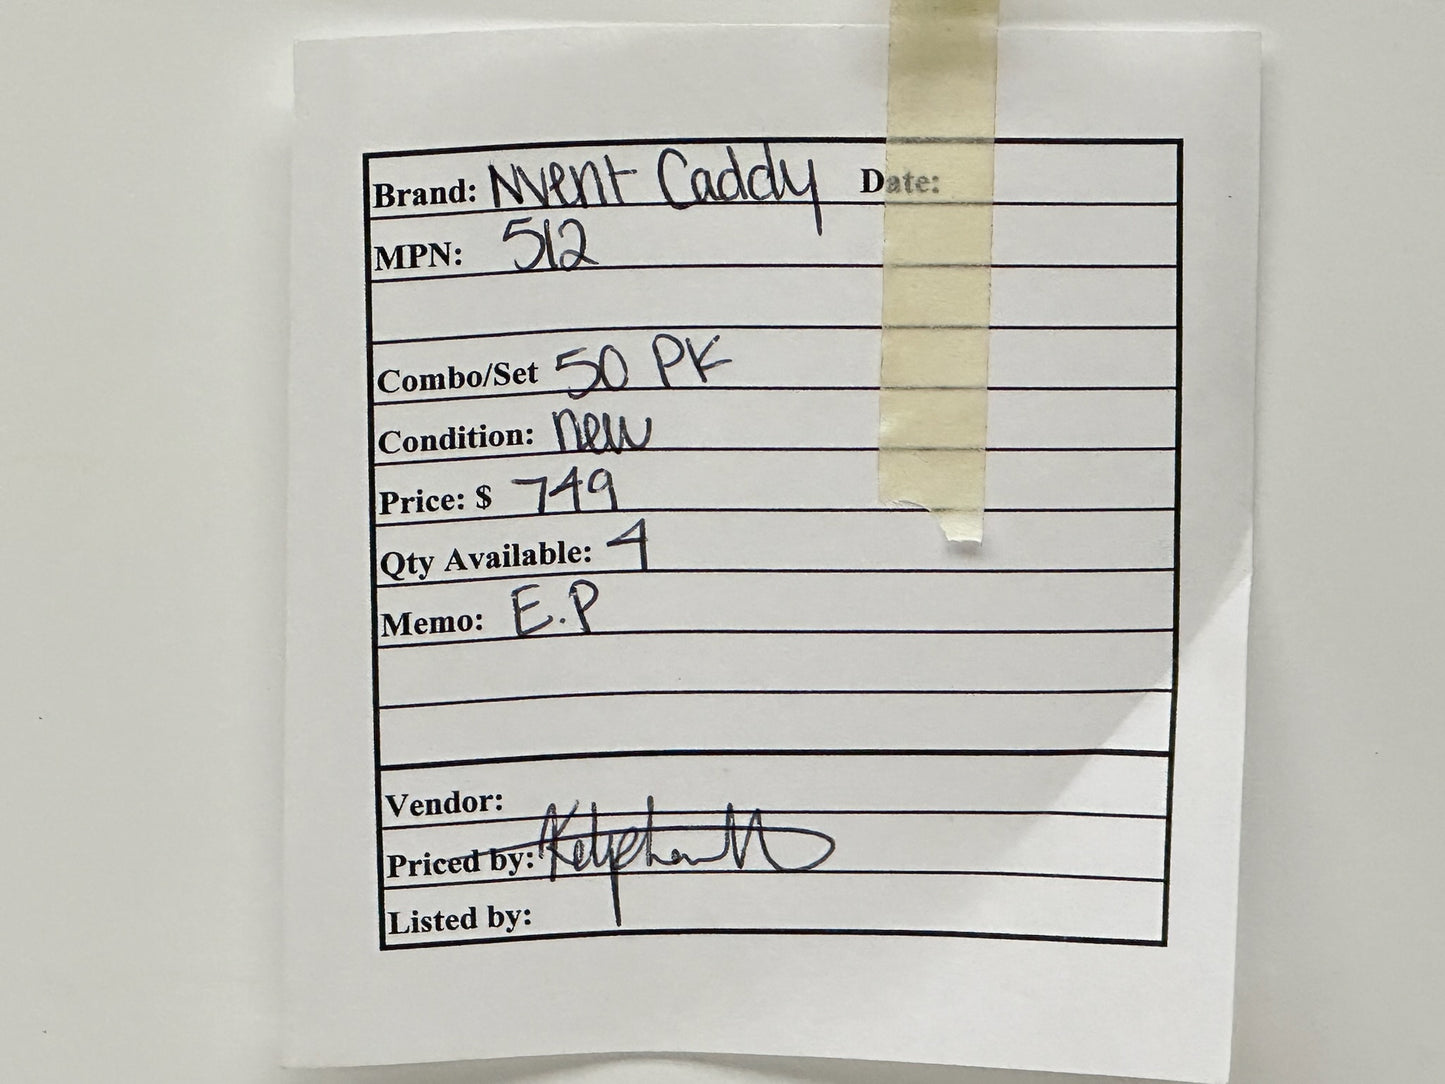 Brand: Nvent Caddy Date:
MPN: 512
Combo/Set 50 PK
Condition: new
Price: $ 749
Qty Available: 4
Memo: E.P
Vendor:
Priced by:
Listed by: